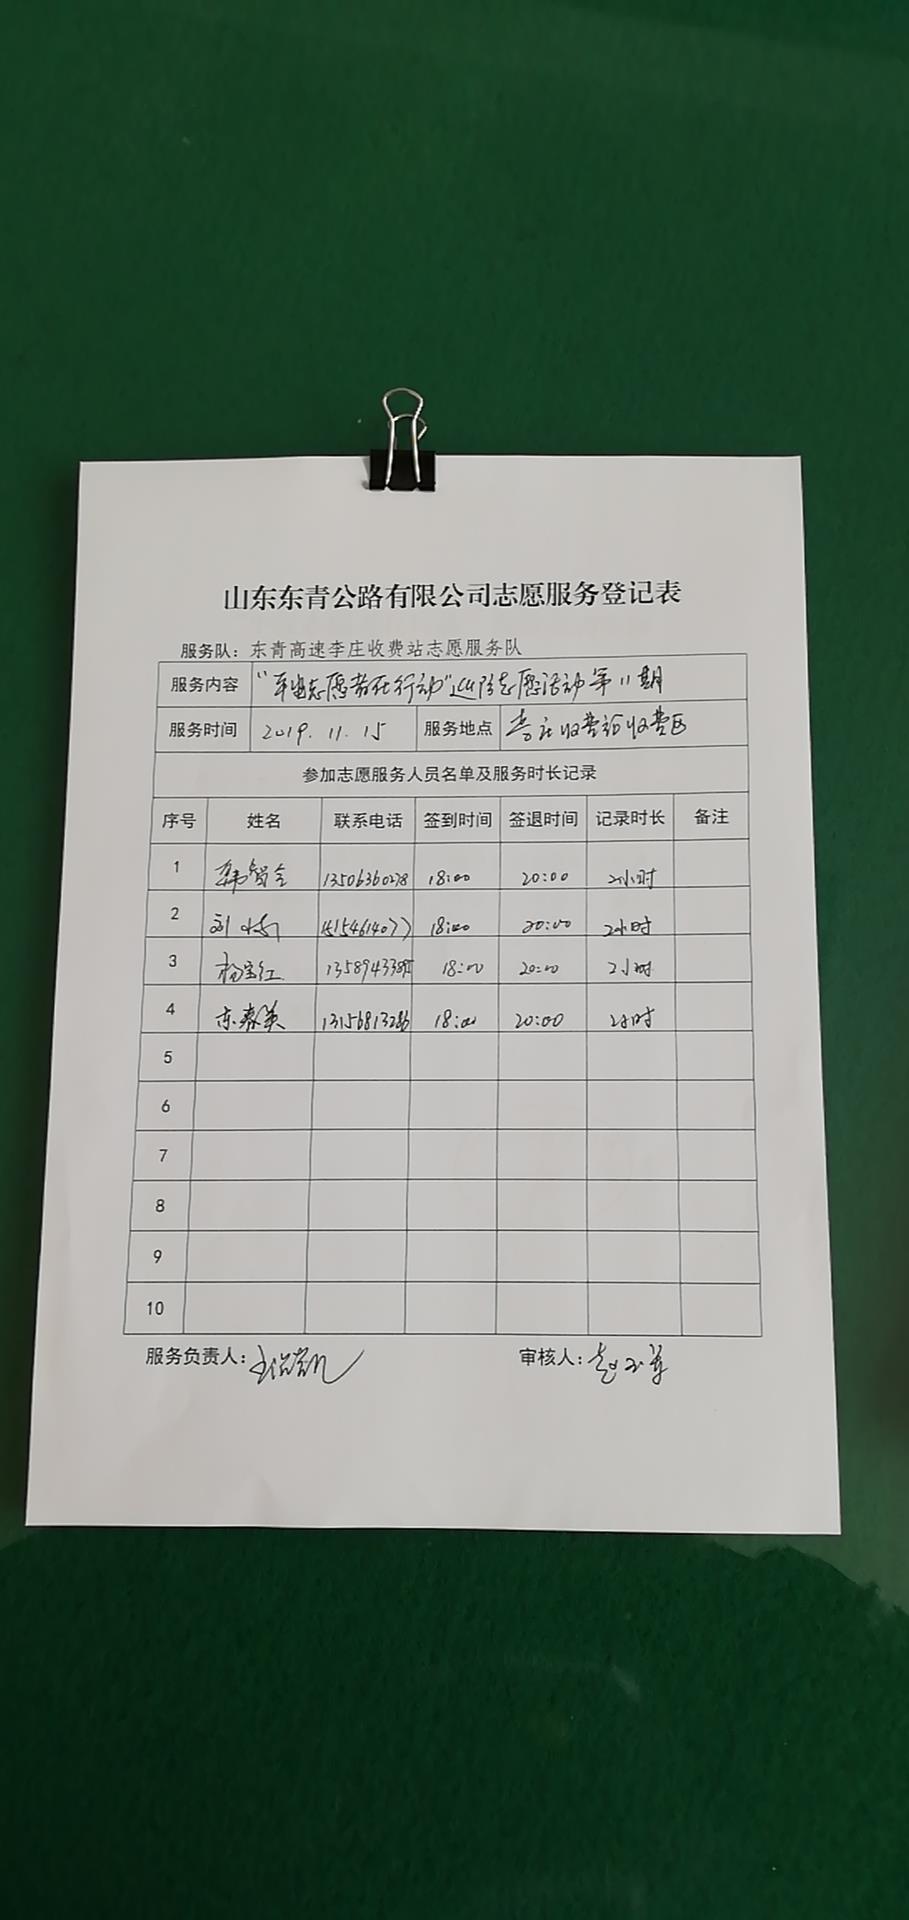 山东东青公路有限公司志愿服务登记表
服务队：东青高速李庄收费站志愿服务队
服务内容 "平安志愿者在行动"巡防志愿活动第11期
服务时间 2019.11.15 服务地点 李庄收费站收费区
参加志愿服务人员名单及服务时长记录
序号 姓名 联系电话 签到时间 签退时间 记录时长 备注
1 韩智全 13506360278 18:00 20:00 2小时
2 刘 15154614077 18:00 20:00 2小时
3 杨宝红 18:00 20:00 2小时
4 东春英 13156813286 18:00 20:00 2小时
5
6
7
8
9
10
服务负责人： 审核人：